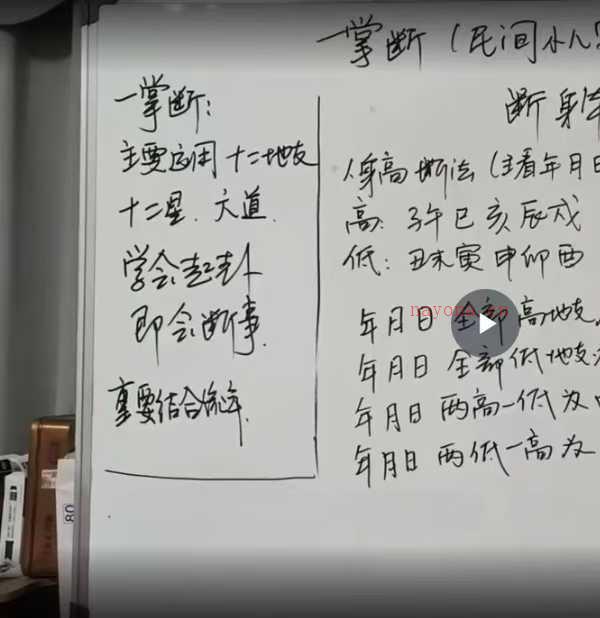 一掌断(民间小儿
一掌断:
主要运用十二地支
十二星.六道.
学会起卦
即会断事.
重要结合流年.
断身
人身高断法(主看年月日
高:子午巳亥辰戌
低:丑未寅申卯酉
年月日 全部高地支
年月日 全部低地支
年月日 两高一低为
年月日 两低一高为
80